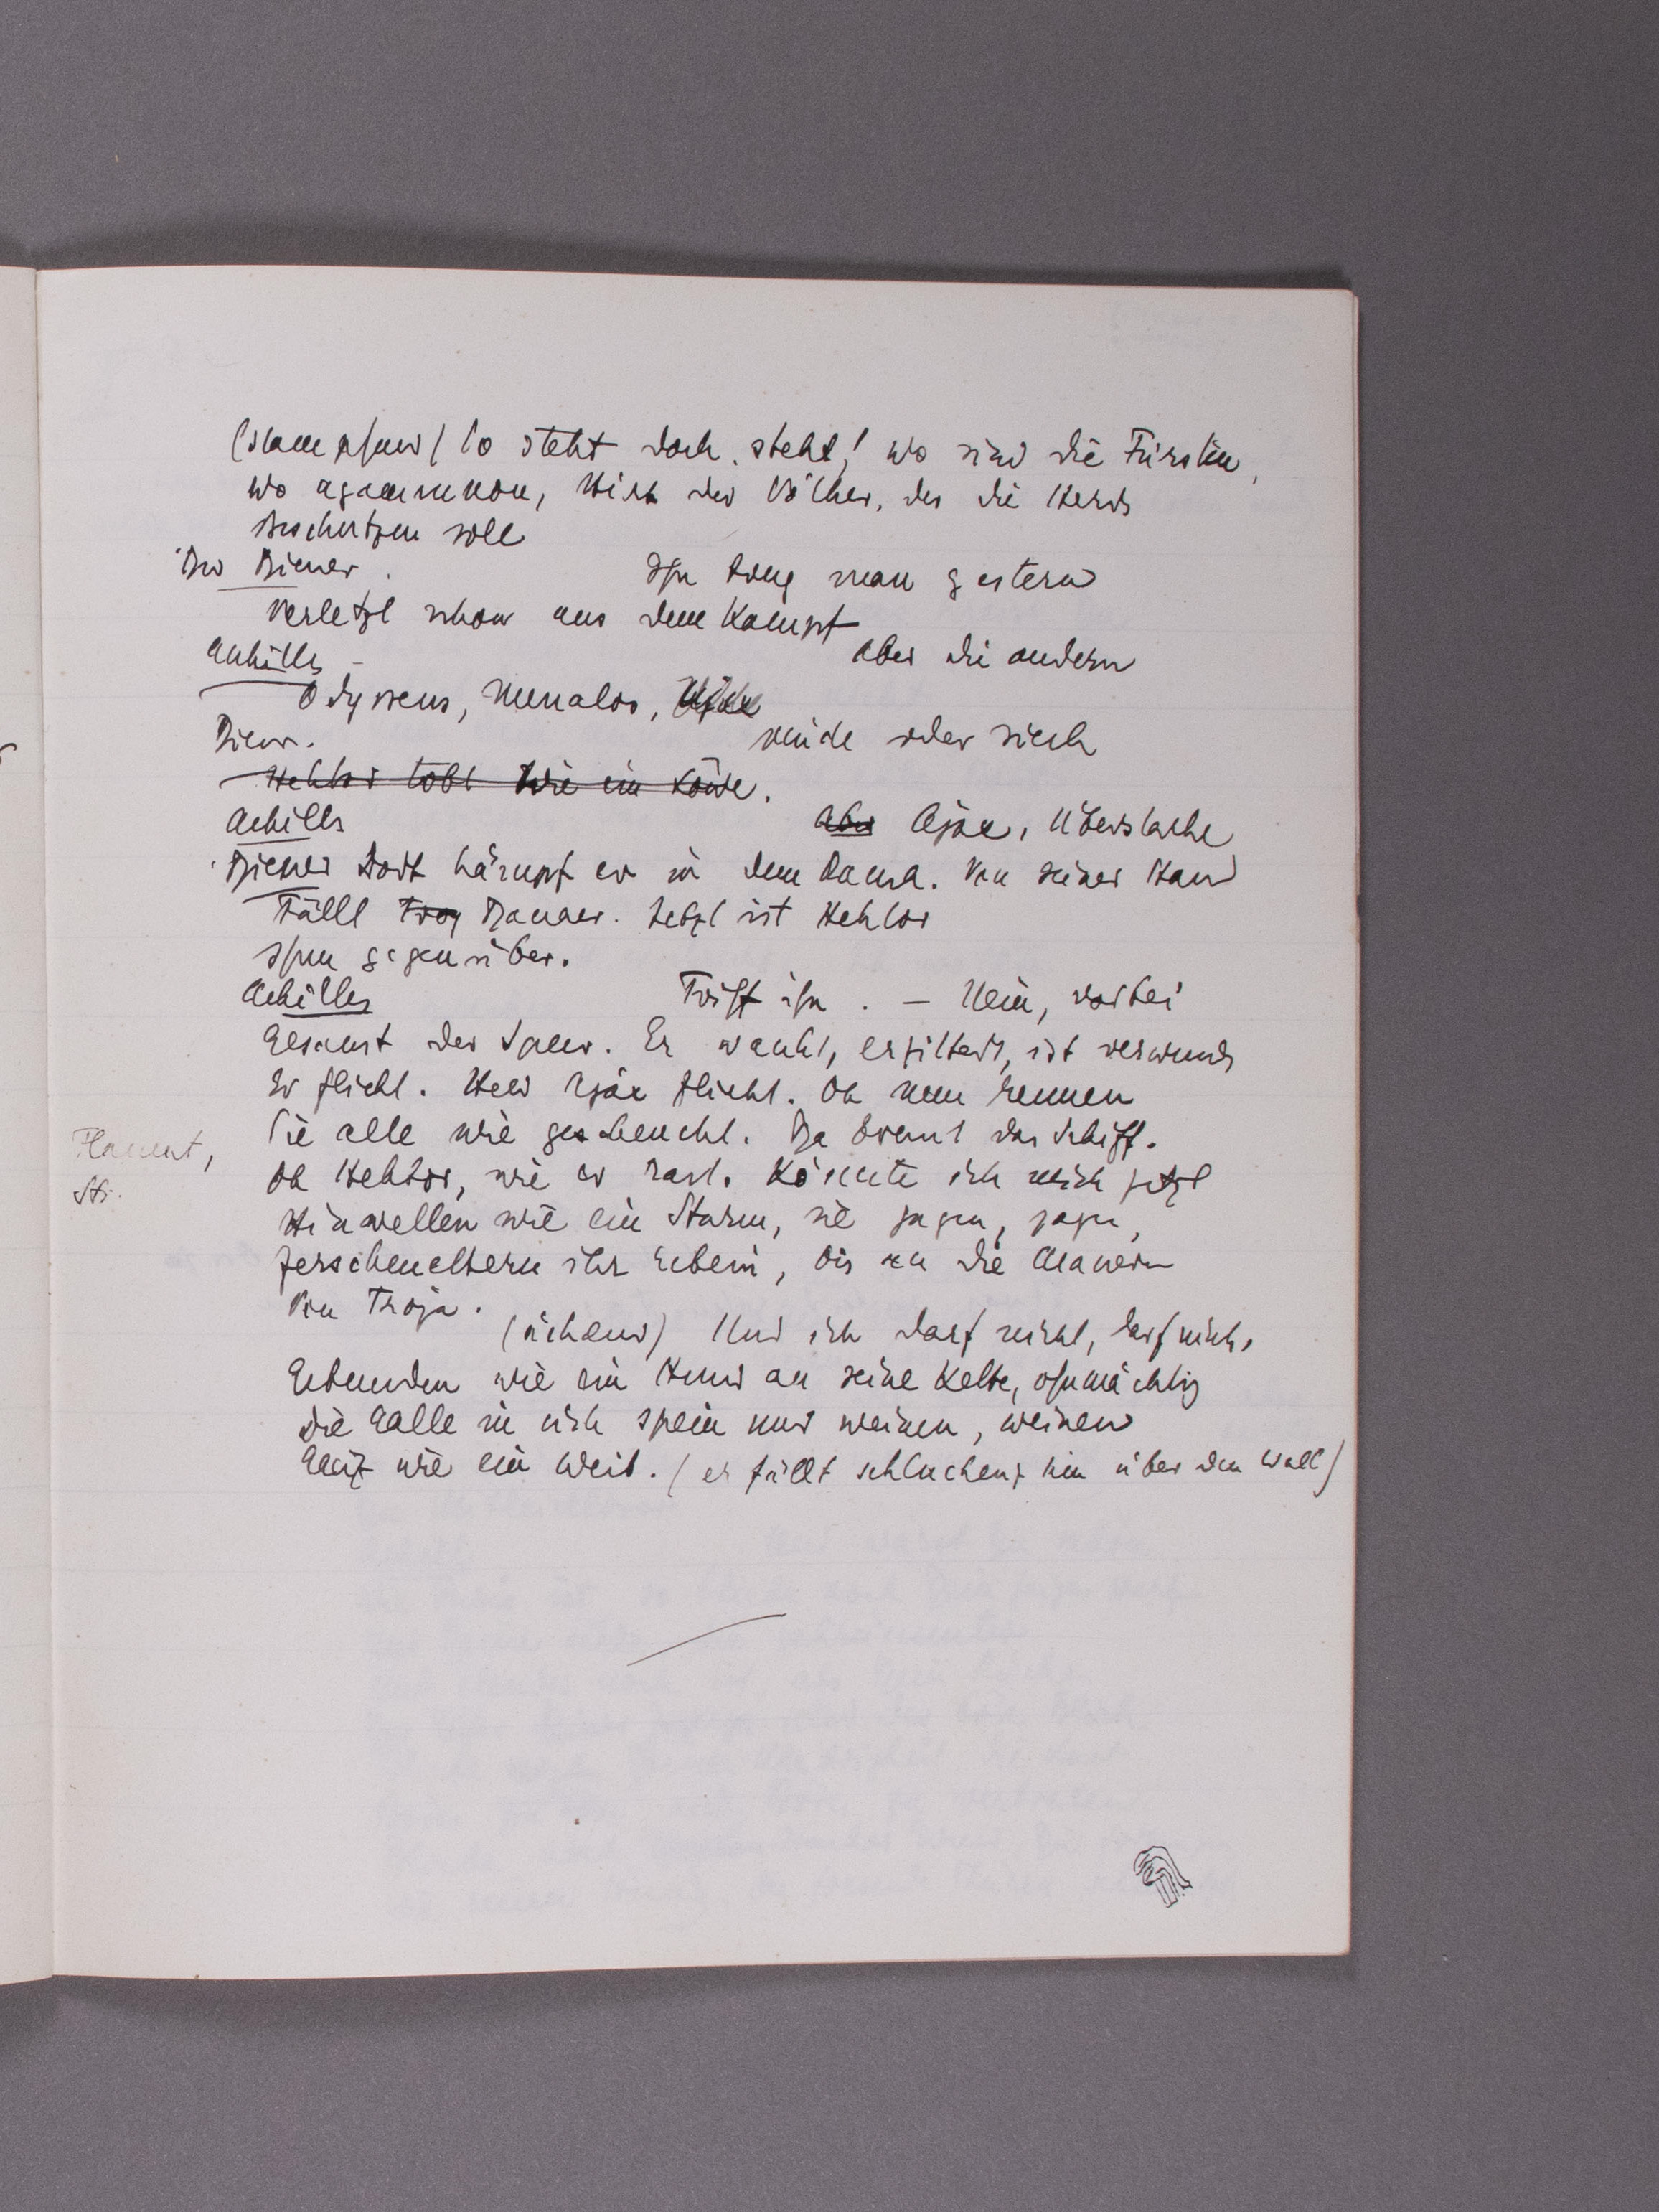 (stampfend) So steht doch, steht! Wo sind die Fürsten,
Wo Agamemnon, Hirt der Völker, der die Herde
Beschützen soll
Der Diener. Ihn trug man gestern
Verletzt schon aus dem Kampf
Achilles – Aber die andern
Odysseus, Menalos, Ajax
Diener. müde oder siech
Hektor tobt wie ein Löwe.
Achills Aber Ajax, Überstarke
Diener Dort kämpft er in dem Dampf. Von seiner Hand
Fällt Troj Danaer. Jetzt ist Hektor
Ihm gegenüber.
Achilles Triff ihn. – Nein, vorbei
Gesaust der Speer. Er wankt, erzittert, ist verwundet
Er flieht. Held Ajax flieht. Oh nun rennen
Sie alle wie gescheucht. Da brennt das Schiff.
Flammt,
Oh Hektor, wie er rast. Könnte ich mich jetzt
Hinwellen wie ein Sturm, sie jagen, jagen,
Zerschmettern ihr Gebein, bis an die Mauern
Von Troja.
(ächzend) Und ich darf nicht, darf nicht,
Gebunden wie ein Hund an seine Kette, ohnmächtig
Die Galle in mich spein und weinen, weinen
wie ein Weib. (er fällt schluchzend hin über den Wall)